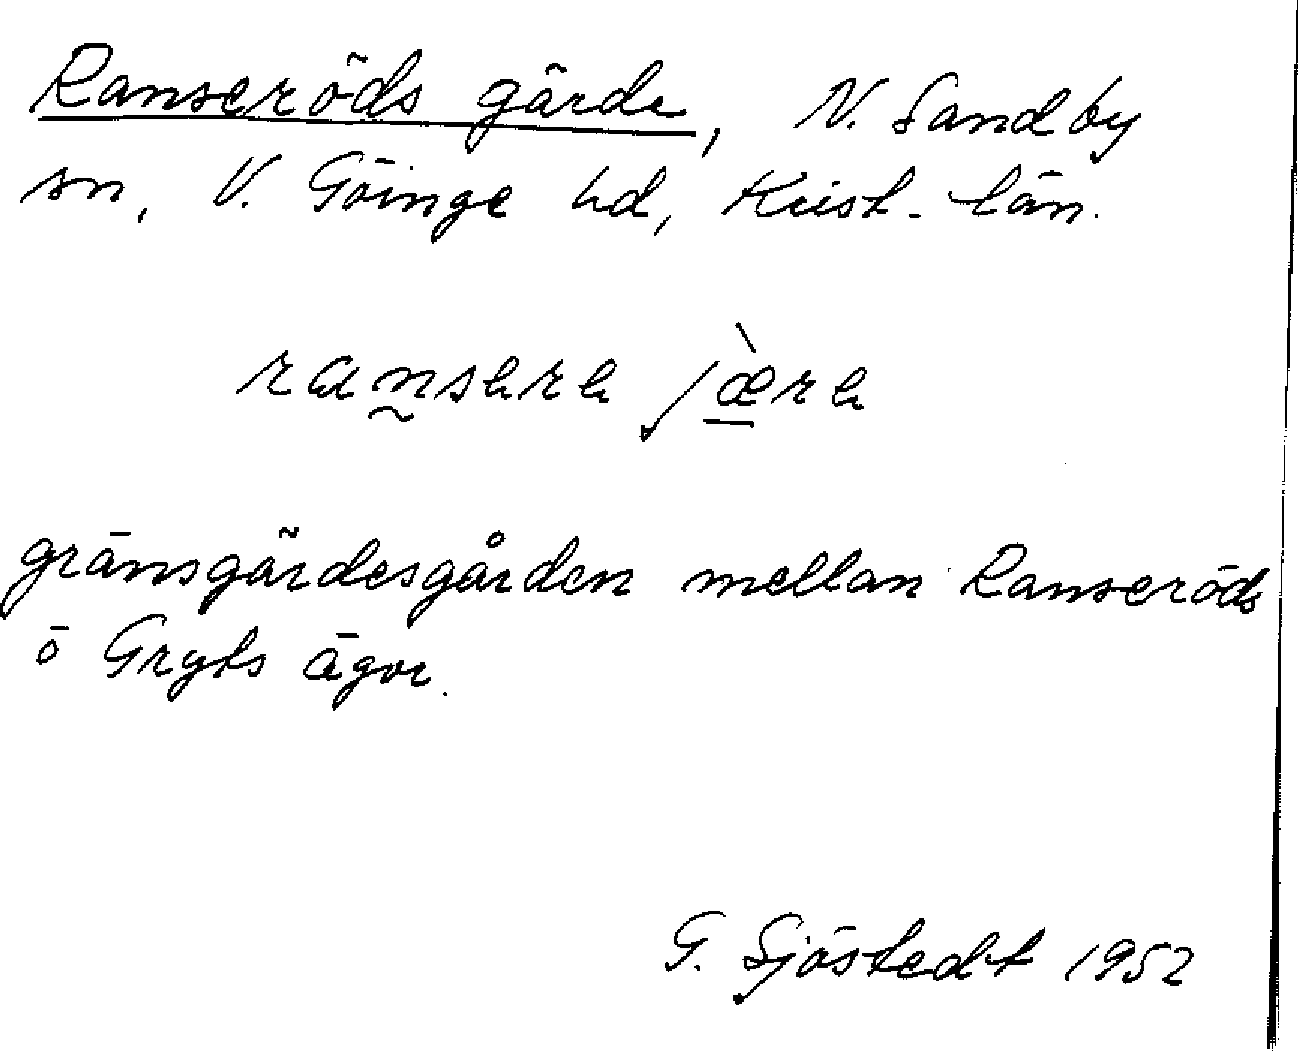 Ranseröds gärde, N. Sandby
sn, V. Göinge hd, Krist. län.
ransərə jæ̀rə
gränsgärdesgården mellan Ranseröds
o Gryts ägor.
G. Sjöstedt 1952